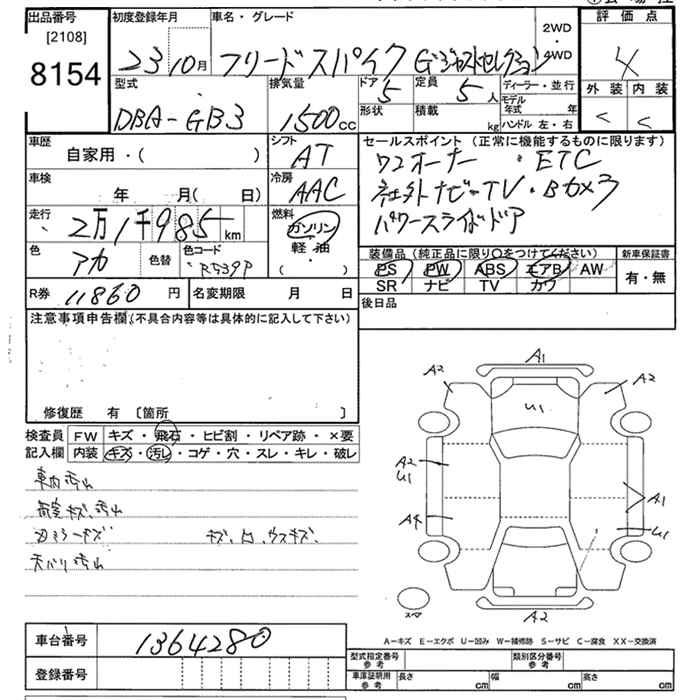 出品番号 初度登録年月 車名・グレード 2WD・4WD 評価点
[2108]
8154 23 10月 フリードスパイク Gジャストセレクション 4
型式 排気量 ドア 定員 ディーラー・並行 外装 内装
DBA-GB3 1500cc 5 5人 モデル年式 年 C C
形状 積載 kg ハンドル 左・右
車歴 シフト セールスポイント（正常に機能するものに限ります）
自家用・( ) AT ワンオーナー・ETC
車検 冷房 社外ナビ・TV・Bカメラ
年 月(日) AAC パワースライドドア
走行 燃料
2万1千985km ガソリン
色 色替 色コード 軽油 装備品（純正品に限り○をつけてください） 新車保証書
アカ R539P ( ・ ) PS PW ABS エアB AW 有・無
SR ナビ TV カワ
R券 11860円 名変期限 月 日 後日品
注意事項申告欄(不具合内容等は具体的に記入して下さい)
修復歴 有〔箇所 〕
検査員 FW キズ・飛石・ヒビ割・リペア跡・×要
記入欄 内装 キズ・汚レ・コゲ・穴・スレ・キレ・破レ
車内汚レ
荷室キズ、汚レ
天バリ汚レ
A1
A2 A2
U1
A2
U1
A1
A4 U1
A2
A-キズ E-エクボ U-凹み W-補修跡 S-サビ C-腐食 XX-交換済
車台番号 1364280 型式指定番号 参考 類別区分番号 参考
登録番号 車庫証明用 参考 長さ cm 幅 cm 高さ cm